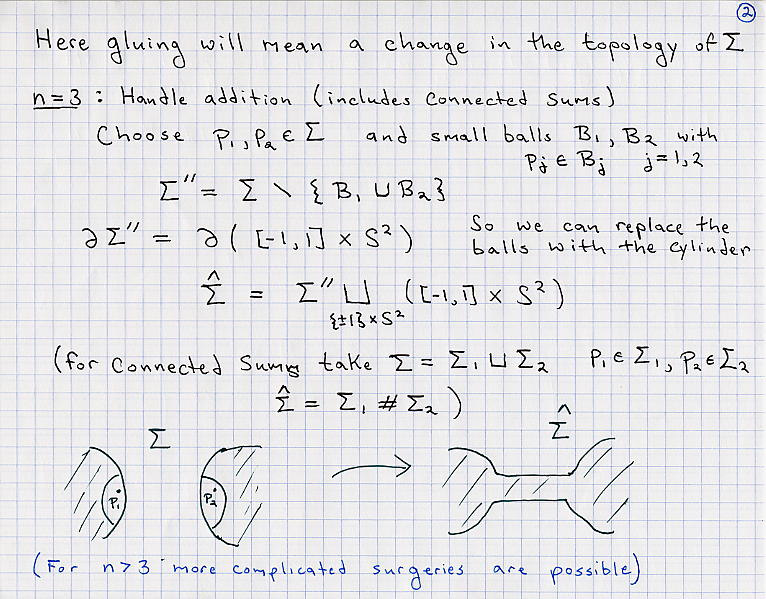 ②
Here gluing will mean a change in the topology of Σ
n=3 : Handle addition (includes connected sums)
Choose P₁, P₂ ∈ Σ and small balls B₁, B₂ with
Pⱼ ∈ Bⱼ j=1,2
Σ'' = Σ \ { B₁ ∪ B₂}
∂Σ'' = ∂( [-1,1] × S²) So we can replace the
balls with the cylinder
Σ̂ = Σ'' ⊔ ([-1,1] × S²)
{±1}×S²
(for connected sums take Σ = Σ₁ ⊔ Σ₂ P₁ ∈ Σ₁, P₂ ∈ Σ₂
Σ̂ = Σ₁ # Σ₂ )
Σ Σ̂
P₁ P₂
(For n>3 more complicated surgeries are possible)